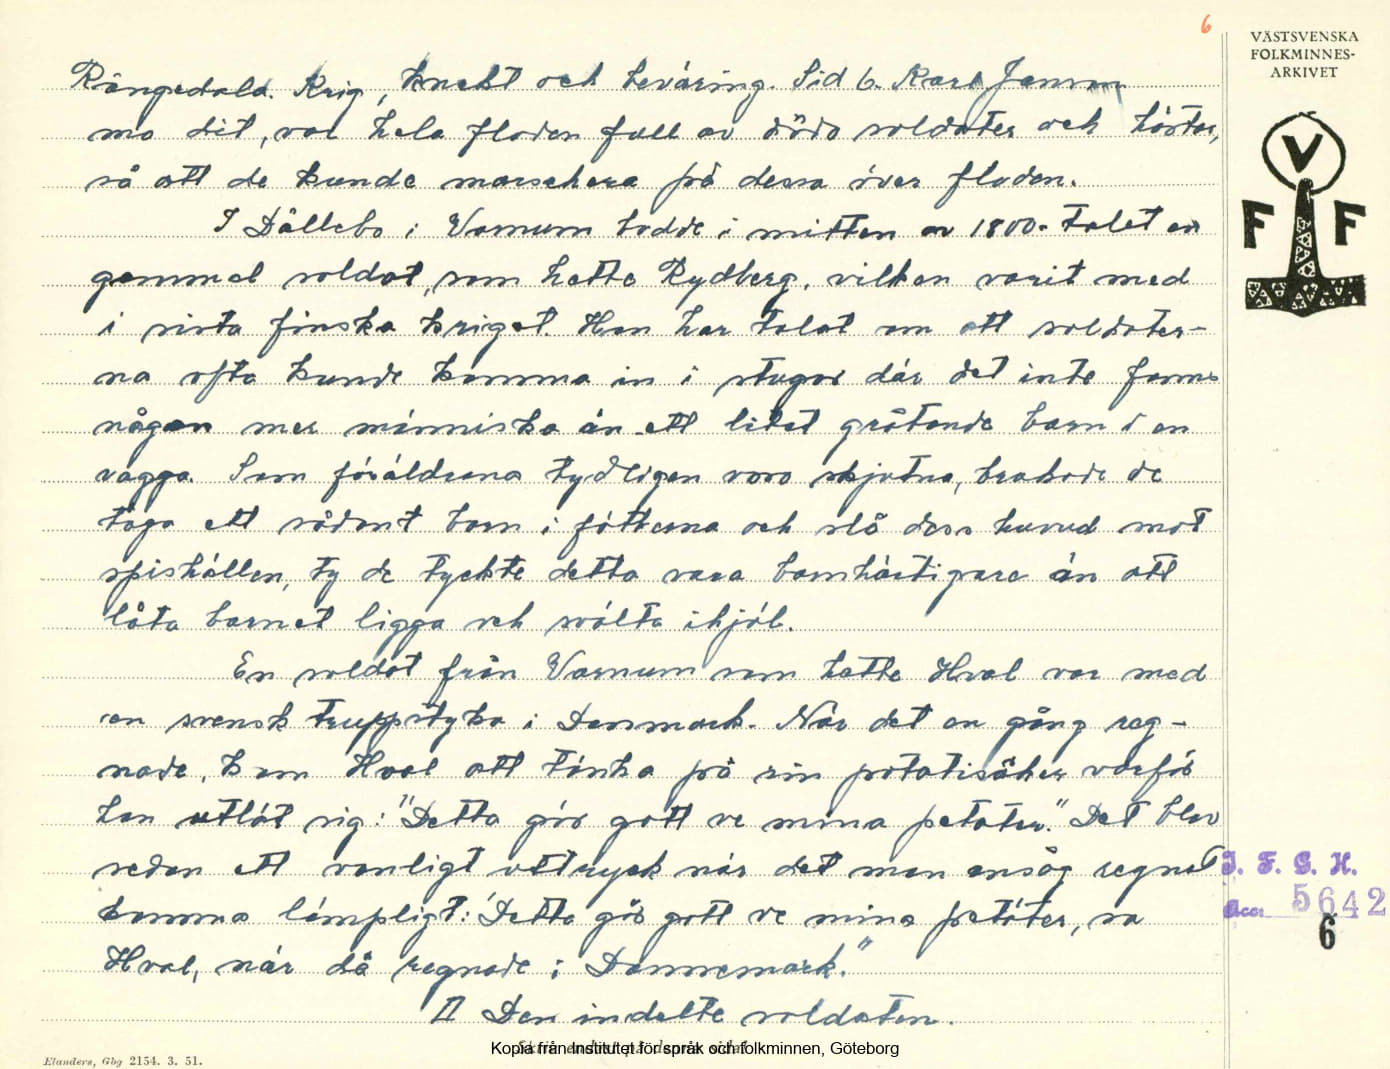 6
VÄSTSVENSKA
FOLKMINNES-
ARKIVET
V
F F
Rångedala. Krig, knekt och beväring. Sid 6. Karl Janson
mo dit, var hela floden full av döda soldater och hästar,
så att de kunde marschera på dessa över floden.
I Dållebo i Varnum bodde i mitten av 1800-talet en
gammal soldat, som hette Rydberg, vilken varit med
i sista finska kriget. Han har talat om att soldater-
na ofta kunde komma in i stugor där det inte fanns
någon mer människa än ett litet gråtande barn i en
vagga. Som föräldrarna tydligen voro skjutna, brukade de
taga ett sådant barn i fötterna och slå dess huvud mot
spishällen, ty de tyckte detta vara barmhärtigare än att
låta barnet ligga och svälta ihjäl.
En soldat från Varnum som hette Hval var med
en svensk truppstyka i Danmark. När det en gång reg-
nade, kom Hval att tänka på sin potatisåker varför
han utlät sig: "Detta gör gott ve mina petater." Det blev
sedan ett vanligt uttryck när det man ansåg regnet
komma lämpligt: "Detta gör gott ve mina petäter, sa
Hval, när dä regnade i Dannemark."
II Den indelte soldaten.
I. F. G. H.
Acc. 5642
6
Elanders, Gbg 2154. 3. 51.
Kopia från Institutet för språk och folkminnen, Göteborg